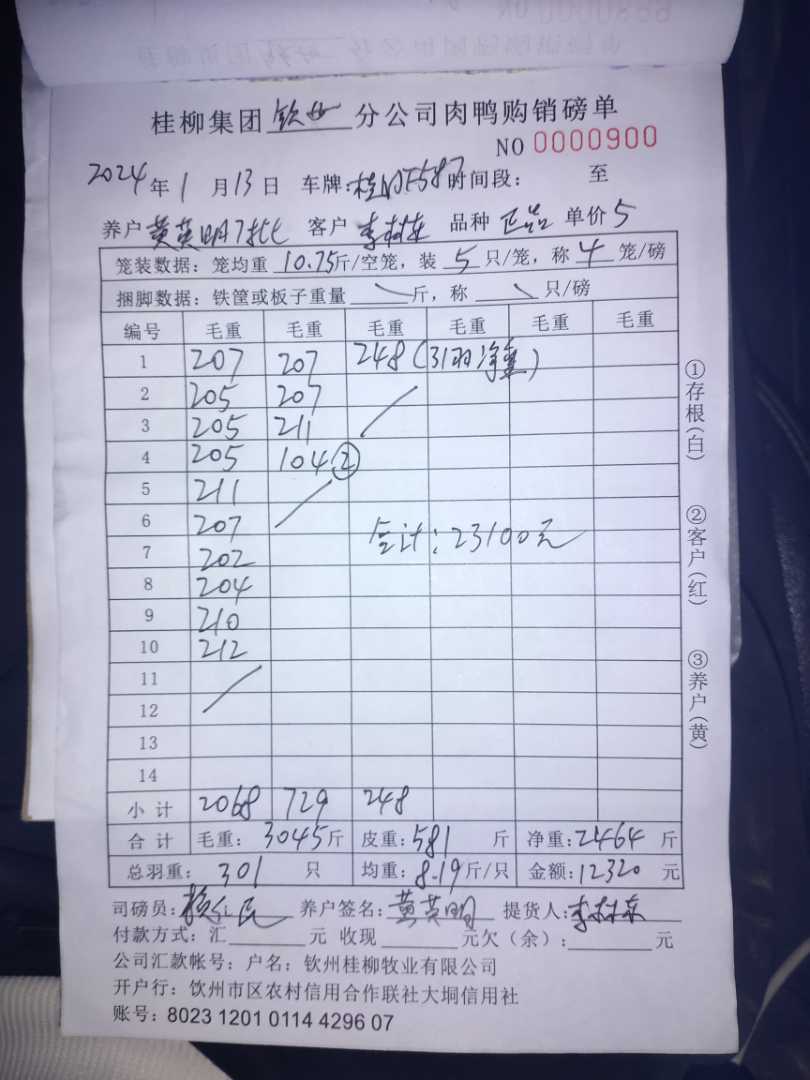 桂柳集团钦州分公司肉鸭购销磅单
NO 0000900
2024年1月13日 车牌:桂 F587 时间段: 至
养户 黄英明7批 客户 李村东 品种 正品 单价 5
笼装数据:笼均重 10.75斤/空笼,装 5 只/笼,称 4 笼/磅
捆脚数据:铁筐或板子重量 \ 斤,称 \ 只/磅
编号 毛重 毛重 毛重 毛重 毛重 毛重
1 207 207 248(31羽净重)
2 205 207
3 205 211
4 205 104②
5 211
6 207
合计:23100元
7 202
8 204
9 210
10 212
11
12
13
14
小计 2068 729 248
合计 毛重:3045斤 皮重:581 斤 净重:2464 斤
总羽重:301 只 均重:8.19斤/只 金额:12320 元
司磅员: 养户签名:黄英明 提货人:李村东
付款方式:汇 元 收现 元欠(余): 元
公司汇款帐号:户名:钦州桂柳牧业有限公司
开户行:饮州市区农村信用合作联社大垌信用社
账号:8023 1201 0114 4296 07
①存根(白)
②客户(红)
③养户(黄)